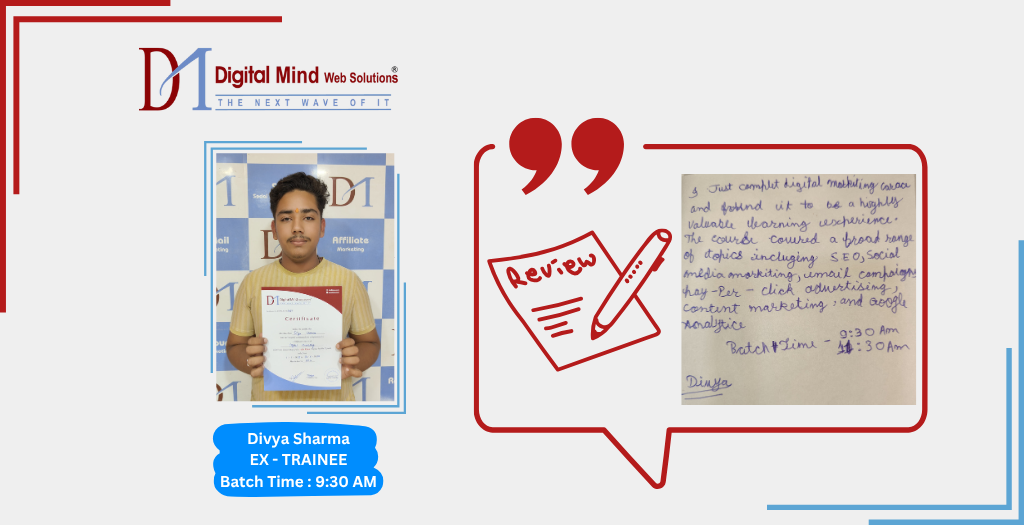 DM Digital Mind Web Solutions®
THE NEXT WAVE OF IT
DM
Affiliate
Marketing
DM
Certificate
Divya Sharma
EX - TRAINEE
Batch Time : 9:30 AM
Review
I Just complet digital marketing corace
and fobind it to be a highly
valuable learning experience.
The course covered a broad range
of topics incluging SEO, Social
media markiting, email campaigns
pay-Per-click advertising,
content marketing, and Google
Analytice
9:30 Am
Batch Time - :30 Am
Divya